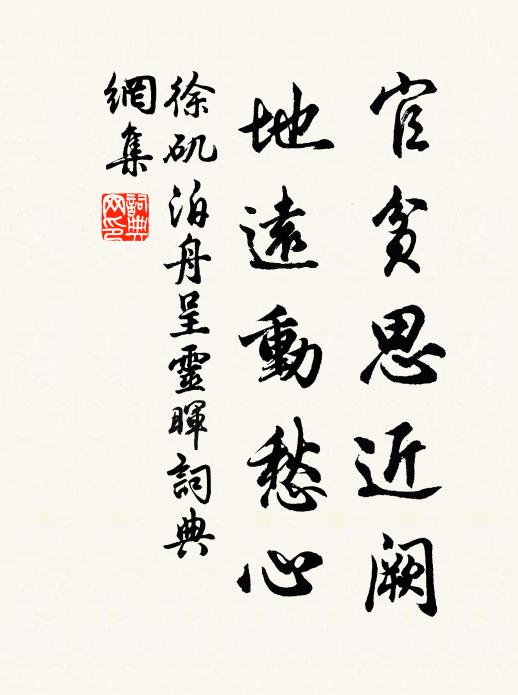 官貧思近闕
地遠動愁心
徐矶泊舟呈靈暉詞典
網集
詞典
网印